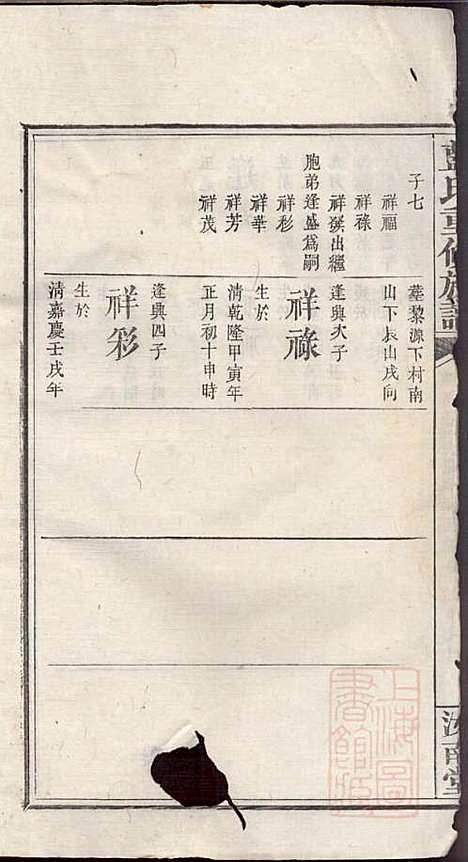 藍氏重修族譜
子七
祥福
祥祿
祥撰出繼
胞弟逢盛爲嗣
祥彩
祥華
祥芳
祥茂
墓黎源下村南
山下辰山戌向
逢興次子
祥祿
生於
清乾隆甲寅年
正月初十申時
逢興四子
祥彩
生於
清嘉慶壬戌年
汝南堂
上海圖
書館藏